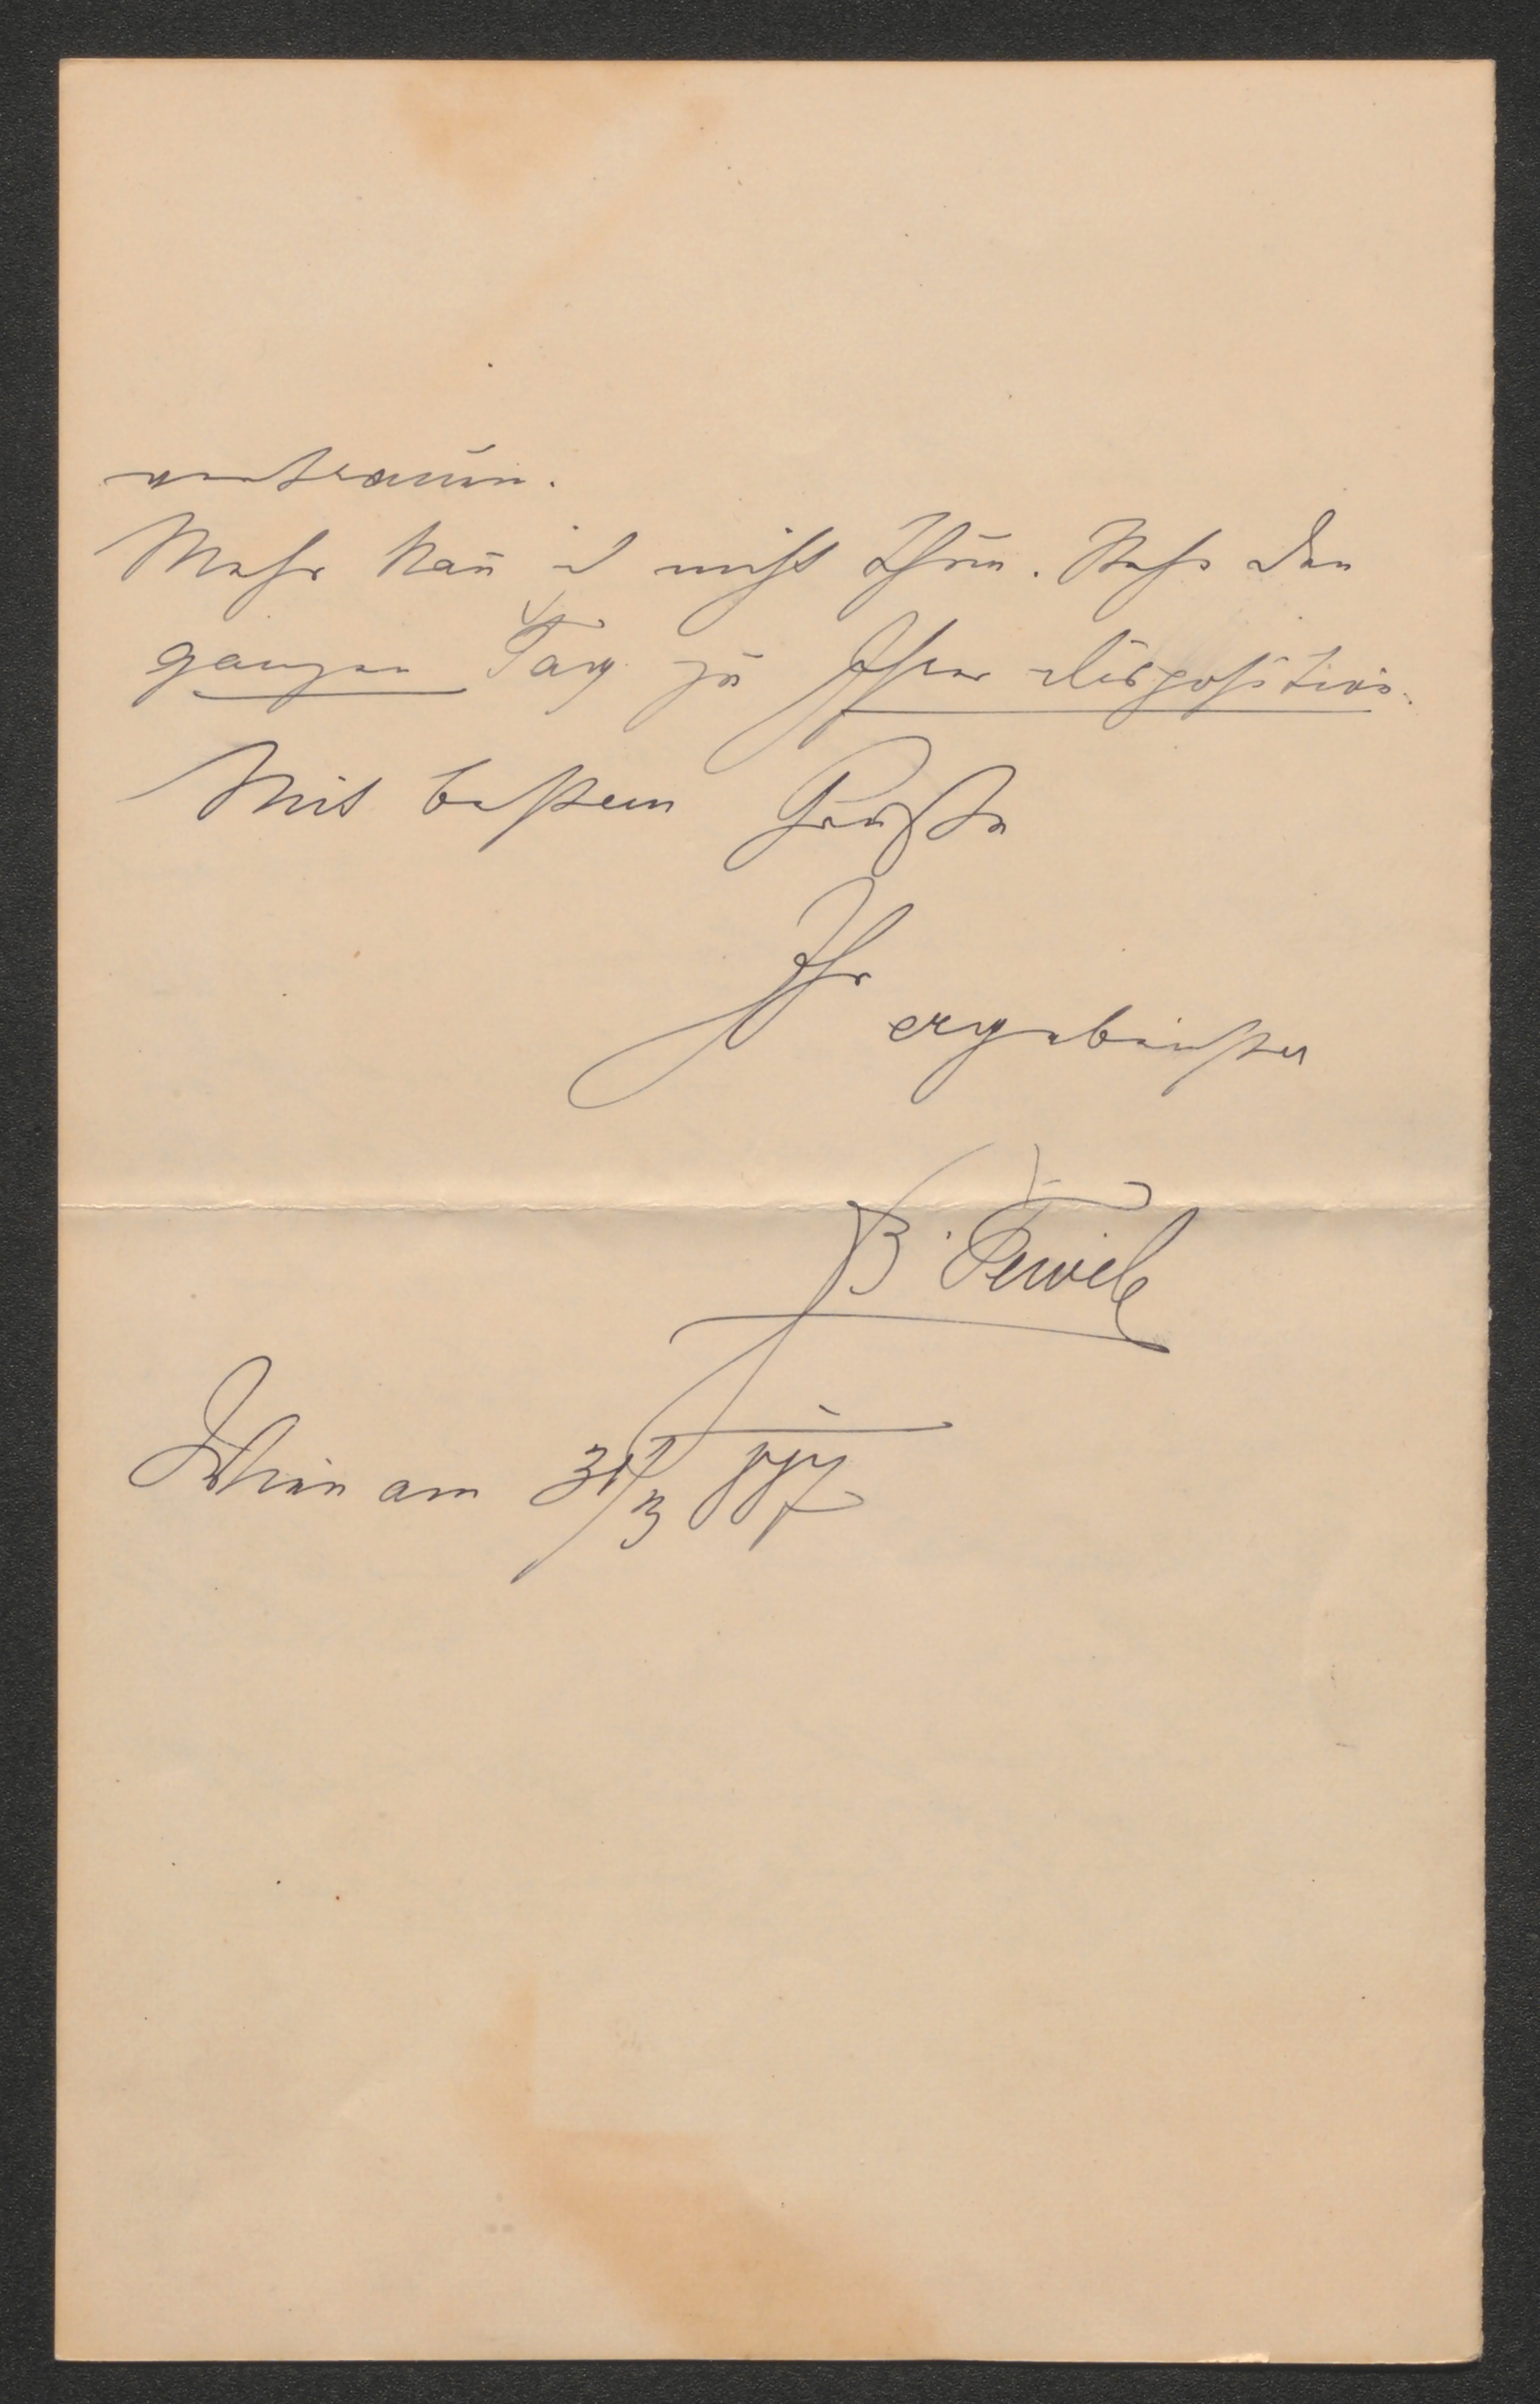 vertrauen.
Mehr kañ ich nicht thun. Stehe den
ganzen Tag zu Ihrer Disposition.
Mit bestem Gruße
Ihr
ergebenster
B. Tewele
Wien am 31/3 887